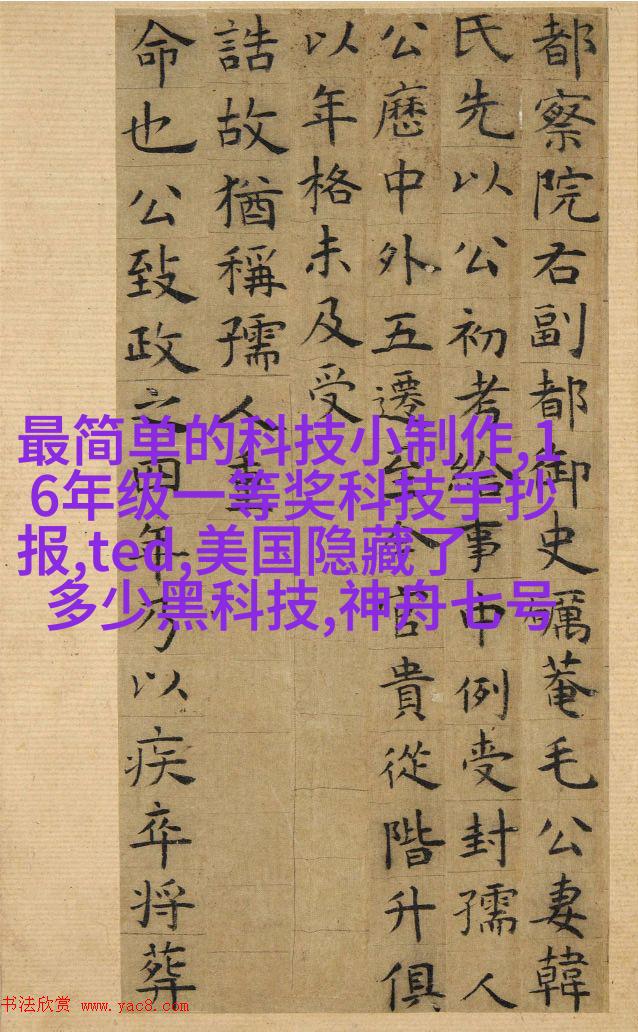 都察院右副都御史礪菴毛公妻韓
氏先以公初考給事中例受封孺人
公歷中外五遷至今官貴從階升俱
以年格未及受
誥故猶稱孺人重
命也公致政之四年乃以疾卒將葬
最简单的科技小制作,1
6年级一等奖科技手抄
报,ted,美国隐藏了
多少黑科技,神舟七号
书法欣赏 www.yac8.com